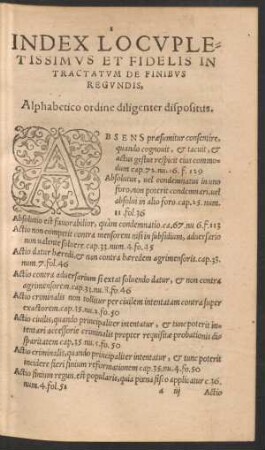 INDEX LOCVPLE-
TISSIMVS ET FIDELIS IN
TRACTATVM DE FINIBVS
REGVNDIS,
Alphabetico ordine diligenter dispositus.
ABSENS præsumitur consentire,
quando cognouit, & tacuit, &
actus gestus respicit eius commo-
dum cap.72.nu.16. f. 129
Absolutus, vel condemnatus in vno
foro, non poterit condemnari, vel
absolui in alio foro. cap.25. num.
11 fol.36
Absolutio est fauorabilior, quàm condemnatio. ca.67.nu 6.f.113
Actio non competit contra mensorem nisi in subsidium, aduersario
non valente soluere cap.33.num.4.fo.45
Actio datur hæredi, & non contra hæredem agrimensoris.cap.33.
num.7.fol.46
Actio contra aduersarium si extat soluendo datur, & non contra
agrimensorem cap.33.nu.8.fo.46
Actio criminalis non tollitur per ciuilem intentatam contra super
exactorem.cap.35.nu.2.fo.50
Actio ciuilis, quando principaliter intentatur, & tunc poterit in-
tentari accessoriè criminalis propter requisitæ probationis dis-
paritatem cap.35.nu.1.fo.50
Actio criminalis, quando principaliter intentatur, & tunc poterit
incidere fieri finium reformationem cap.35.nu.4.fo.50
Actio finium regun. est popularis, quia poena fisco applicatur c.36.
num.4.fol.51
a iij Actio